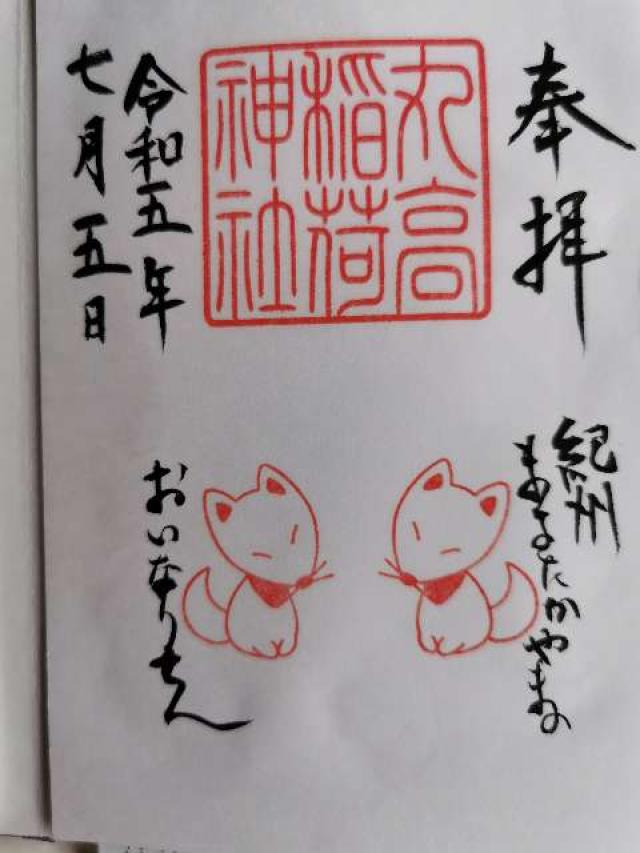 奉拝
丸高
稲荷
神社
令和五年
七月五日
紀州
まるたかやまの
おいなりさん